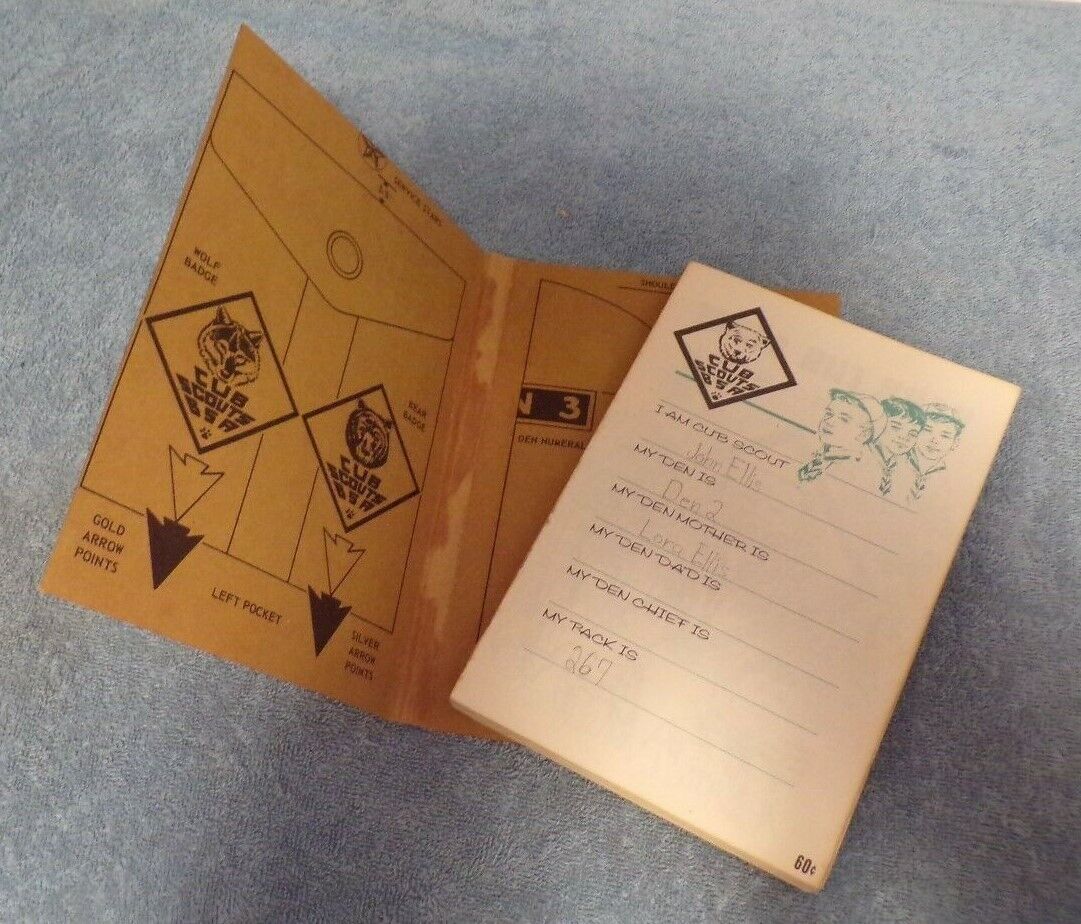 SERVICE STARS
WOLF
BADGE
CUB
SCOUTS
BSA
BEAR
BADGE
CUB
SCOUTS
BSA
GOLD
ARROW
POINTS
LEFT POCKET
SILVER
ARROW
POINTS
SHOUL
N 3
DEN NUMERAL
CUB
SCOUTS
BSA
I AM CUB SCOUT
John Ellis
MY DEN IS
Den 2
MY DEN MOTHER IS
Lora Ellis
MY DEN DAD IS
MY DEN CHIEF IS
MY PACK IS
267
60¢